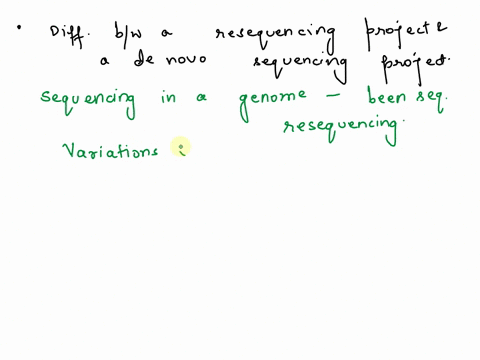 • Diff. b/w a resequencing project &
a de novo sequencing project.
Sequencing in a genome – been seq.
resequencing.
Variations i